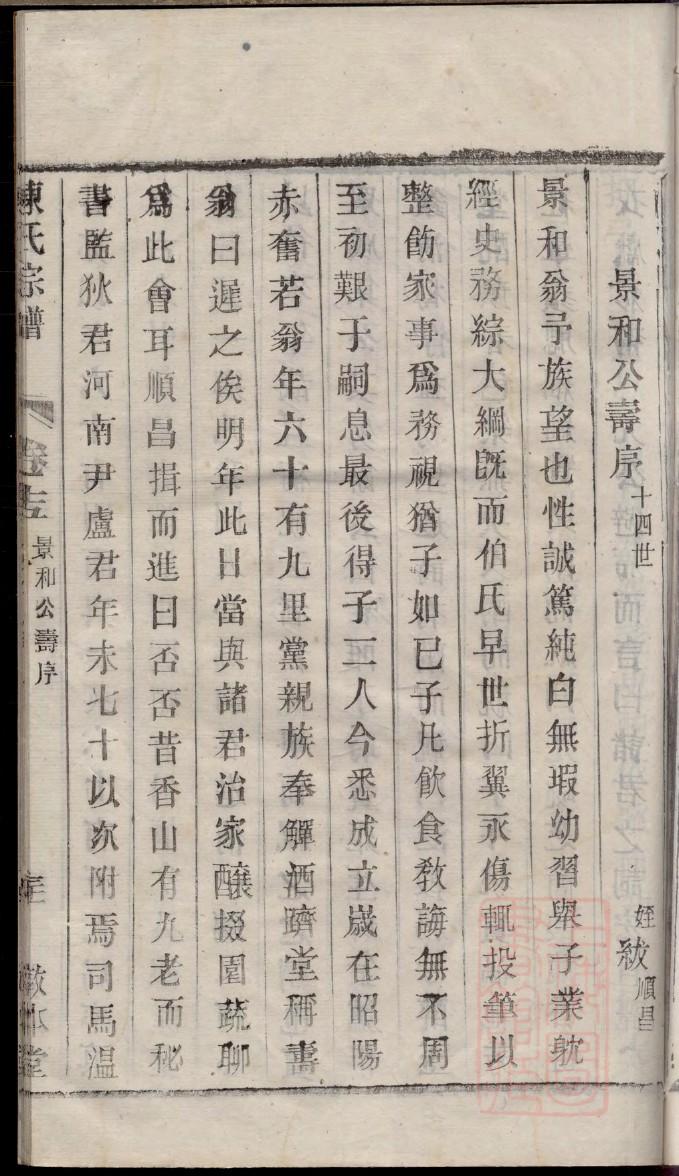 景和公壽序十四世
姪紱順昌
景和翁予族望也性誠篤純白無瑕幼習舉子業躭
經史務綜大綱既而伯氏早世折翼永傷輒投筆以
整飭家事爲務視猶子如已子凡飲食教誨無不周
至初艱于嗣息最後得子三人今悉成立歲在昭陽
赤奮若翁年六十有九里黨親族奉觶酒躋堂稱壽
翁曰遲之俟明年此日當與諸君治家釀掇園蔬聊
爲此會耳順昌揖而進曰否否昔香山有九老而秘
書監狄君河南尹盧君年未七十以次附焉司馬溫
陳氏宗譜
景和公壽序
敬本堂